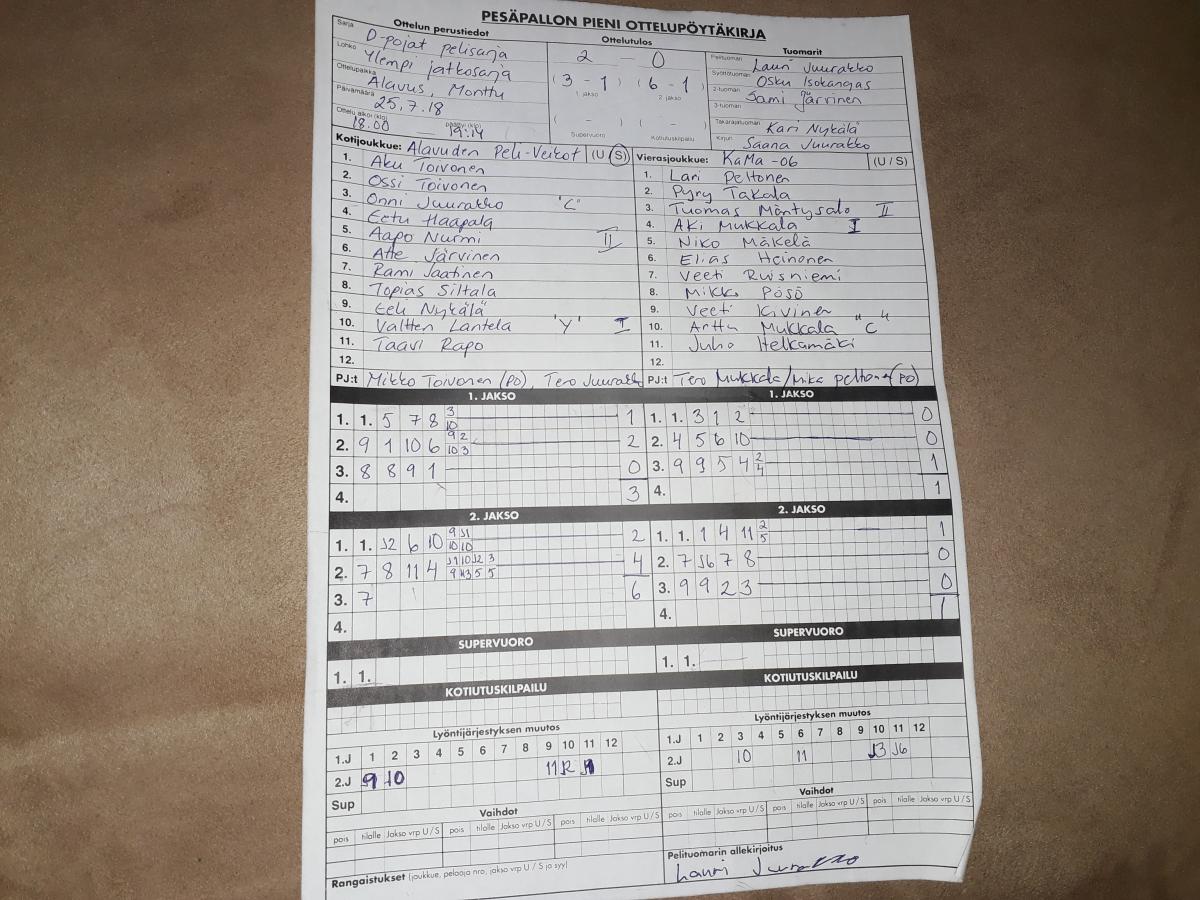 PESÄPALLON PIENI OTTELUPÖYTÄKIRJA
Ottelun perustiedot
Sarja D-pojat pelisarja
Lohko Ylempi jatkosarja
Ottelupaikka Alavus, Monttu
Päivämäärä 25.7.18
Ottelu alkoi (klo) 18.00 — päättyi (klo) 19.14
Ottelutulos
2 – 0
(3 - 1) (6 - 1)
1. jakso 2. jakso
( - ) ( - )
Supervuoro Kotiutuskilpailu
Tuomarit
Pelituomari Lauri Juurakko
Syöttötuomari Osku Isokangas
2-tuomari Sami Järvinen
3-tuomari
Takarajatuomari Kari Nykälä
Kirjuri Saana Juurakko
Kotijoukkue: Alavuden Peli-Veikot (U/S)
1. Aku Toivonen
2. Ossi Toivonen
3. Onni Juurakko "C"
4. Eetu Haapala
5. Aapo Nurmi II
6. Atte Järvinen
7. Rami Jaatinen
8. Topias Siltala
9. Eeli Nykälä
10. Valtteri Lantela 'Y' I
11. Taavi Rapo
12.
PJ:t Mikko Toivonen (PO), Tero Juurakko
Vierasjoukkue: KaMa -06 (U/S)
1. Lari Peltonen
2. Pyry Takala
3. Tuomas Mäntysalo II
4. Aki Mukkala I
5. Niko Mäkelä
6. Elias Heinonen
7. Veeti Ruisniemi
8. Mikko Pösö
9. Veeti Kivinen
10. Arttu Mukkala "C"
11. Juho Itelkamäki
12.
PJ:t Tero Mukkala/Mika Peltonen (PO)
1. JAKSO
1. 1. 5 7 8 3 10 1
2. 9 1 10 6 9 2 10 3 2
3. 8 8 9 1 0
4. 3
1. JAKSO
1. 1. 3 1 2 0
2. 4 5 6 10 0
3. 9 9 5 4 2 4 1
4. 1
2. JAKSO
1. 1. 12 6 10 9 11 10 10 2
2. 7 8 11 4 11 10 12 3 4
3. 7 6
4.
2. JAKSO
1. 1. 1 4 11 2 5 1
2. 7 16 7 8 0
3. 9 9 2 3 0
4. 1
SUPERVUORO
1. 1.
SUPERVUORO
1. 1.
KOTIUTUSKILPAILU
KOTIUTUSKILPAILU
Lyöntijärjestyksen muutos
1.J 1 2 3 4 5 6 7 8 9 10 11 12
2.J 9 10 11 12
Sup
Lyöntijärjestyksen muutos
1.J 1 2 3 4 5 6 7 8 9 10 11 12
2.J 10 11 13 16
Sup
Vaihdot
pois tilalle Jakso vrp U / S pois tilalle Jakso vrp U / S pois tilalle Jakso vrp U / S
Vaihdot
pois tilalle Jakso vrp U / S pois tilalle Jakso vrp U / S pois tilalle Jakso vrp U / S
Rangaistukset (joukkue, pelaaja nro, jakso vrp U / S ja syy)
Pelituomarin allekirjoitus
Lauri Juurakko